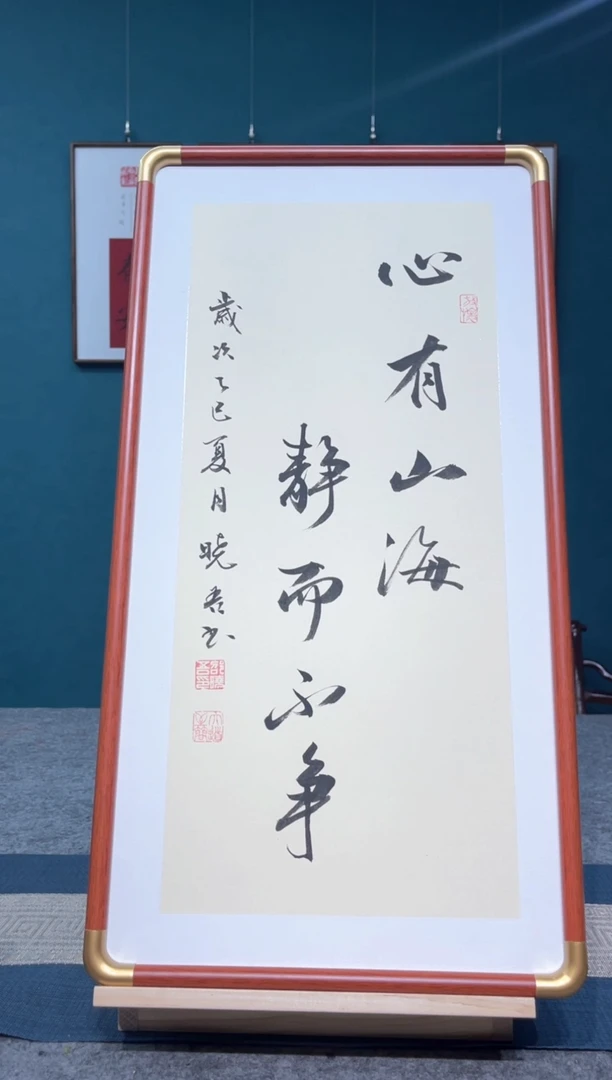 心有山海
静而不争
歲次乙巳夏月曉君书